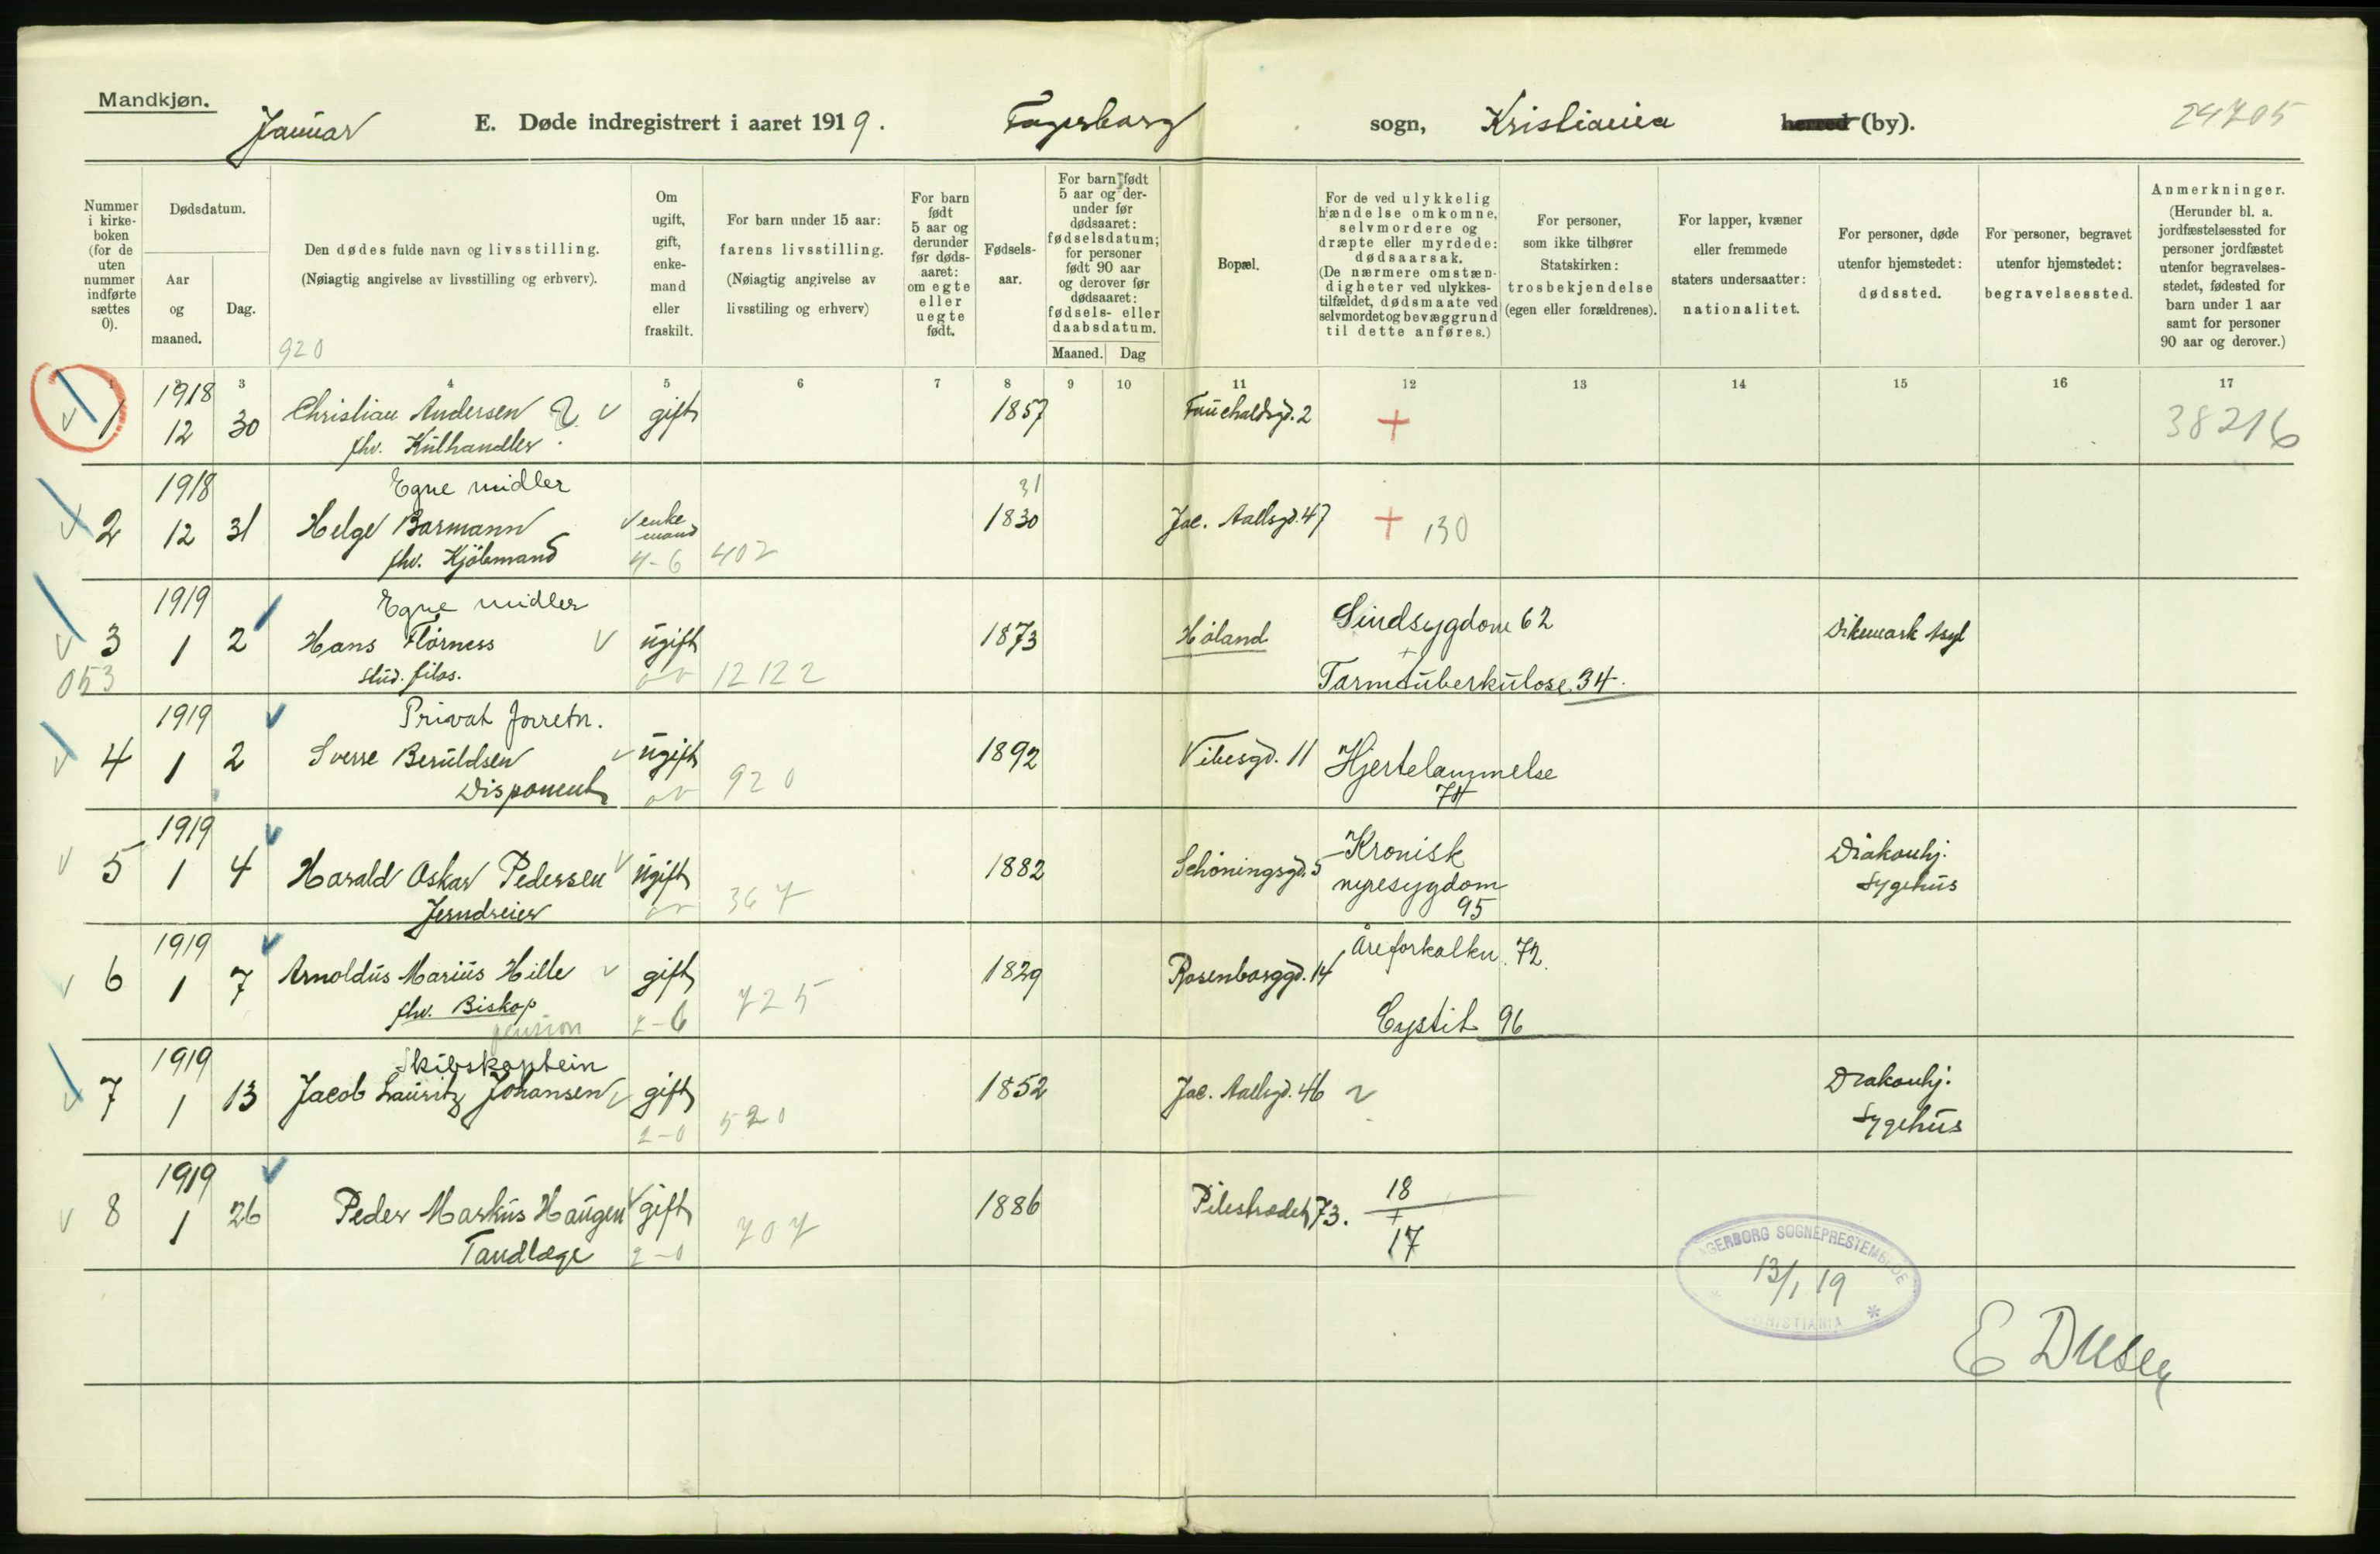 Mandkjøn.
Januar E. Døde indregistrert i aaret 1919. Fagerborg sogn, Kristiania herred (by). 24705
Nummer i kirke-boken (for de uten nummer indførte sættes 0).
Dødsdatum.
Aar og maaned.
Dag.
Den dødes fulde navn og livsstilling.
(Nøiagtig angivelse av livsstilling og erhverv).
920
Om ugift, gift, enke-mand eller fraskilt.
For barn under 15 aar: farens livsstilling.
(Nøiagtig angivelse av livsstiling og erhverv)
For barn født 5 aar og derunder før døds-aaret: om egte eller uegte født.
Fødsels-aar.
For barn født 5 aar og der-under før dødsaaret: fødselsdatum; for personer født 90 aar og derover før dødsaaret: fødsels- eller daabsdatum.
Maaned. Dag
Bopæl.
For de ved ulykkelig hændelse omkomne, selvmordere og dræpte eller myrdede: dødsaarsak.
(De nærmere omstæn-digheter ved ulykkes-tilfældet, dødsmaate ved selvmordet og bevæggrund til dette anføres.)
For personer, som ikke tilhører Statskirken: trosbekjendelse (egen eller forældrenes).
For lapper, kvæner eller fremmede staters undersaatter: nationalitet.
For personer, døde utenfor hjemstedet: dødssted.
For personer, begravet utenfor hjemstedet: begravelsessted.
Anmerkninger.
(Herunder bl. a. jordfæstelsessted for personer jordfæstet utenfor begravelses-stedet, fødested for barn under 1 aar samt for personer 90 aar og derover.)
1 2 3 4 5 6 7 8 9 10 11 12 13 14 15 16 17
1 1918 12 30 Christian Andersen gift 1857 Fauchaldsgd. 2 + 38216
fhv. Kulhandler
Egne midler
2 1918 12 31 Helge Barmann enke mand 1830 31 Jac. Aallsgd. 47 + 130
fhv. Kjøbmand 4-6 402
Egne midler
3 1919 1 2 Hans Flörness ugift 1873 Høland Sindsygdom 62 Dikemark Asyl
053 stud. filos. 12122 + Tarmtuberkulose 34.
Privat forretn.
4 1919 1 2 Sverre Beruldsen ugift 1892 Vibesgd. 11 Hjertelammelse
Disponent 920 74
5 1919 1 4 Harald Oskar Pedersen ugift 1882 Schøningsgd. 5 Kronisk nyresygdom 95 Diakonhj. Sygehus
Jerndreier 367
6 1919 1 7 Arnoldus Marius Hille gift 1829 Rosenborggd. 14 Åreforkalkn. 72.
fhv. Biskop 2-6 725 Cystit 96
pension
Skibskaptein
7 1919 1 13 Jacob Lauritz Johansen gift 1852 Jac. Aallsgd. 46 Diakonhj. Sygehus
2-0 520
8 1919 1 26 Peder Markus Haugen gift 1886 Pilestrædet 73. 18 + 17
Tandlæge 2-0 707
FAGERBORG SOGNEPRESTEMBEDE
13/1 19
KRISTIANIA